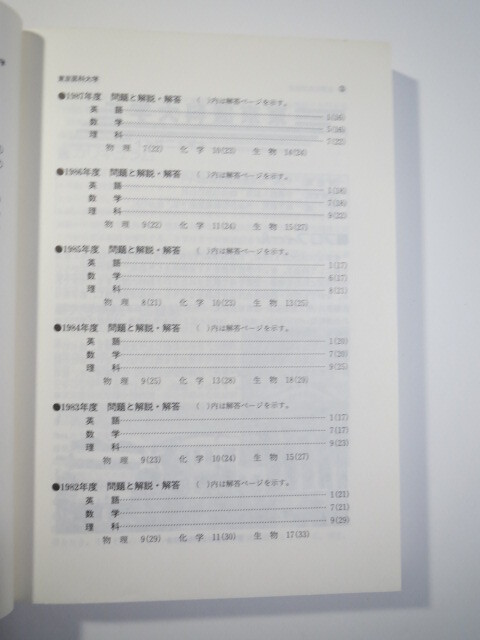 東京医科大学
●1987年度 問題と解説・解答 ( )内は解答ページを示す。
英 語 1(16)
数 学 5(16)
理 科 7(22)
物 理 7(22) 化 学 10(23) 生 物 14(24)
●1986年度 問題と解説・解答 ( )内は解答ページを示す。
英 語 1(16)
数 学 7(16)
理 科 9(22)
物 理 9(22) 化 学 11(24) 生 物 15(27)
●1985年度 問題と解説・解答 ( )内は解答ページを示す。
英 語 1(17)
数 学 6(17)
理 科 8(21)
物 理 8(21) 化 学 10(23) 生 物 13(25)
●1984年度 問題と解説・解答 ( )内は解答ページを示す。
英 語 1(20)
数 学 7(20)
理 科 9(25)
物 理 9(25) 化 学 13(28) 生 物 18(29)
●1983年度 問題と解説・解答 ( )内は解答ページを示す。
英 語 1(17)
数 学 7(17)
理 科 9(23)
物 理 9(23) 化 学 10(24) 生 物 15(27)
●1982年度 問題と解説・解答 ( )内は解答ページを示す。
英 語 1(21)
数 学 7(21)
理 科 9(29)
物 理 9(29) 化 学 11(30) 生 物 17(33)